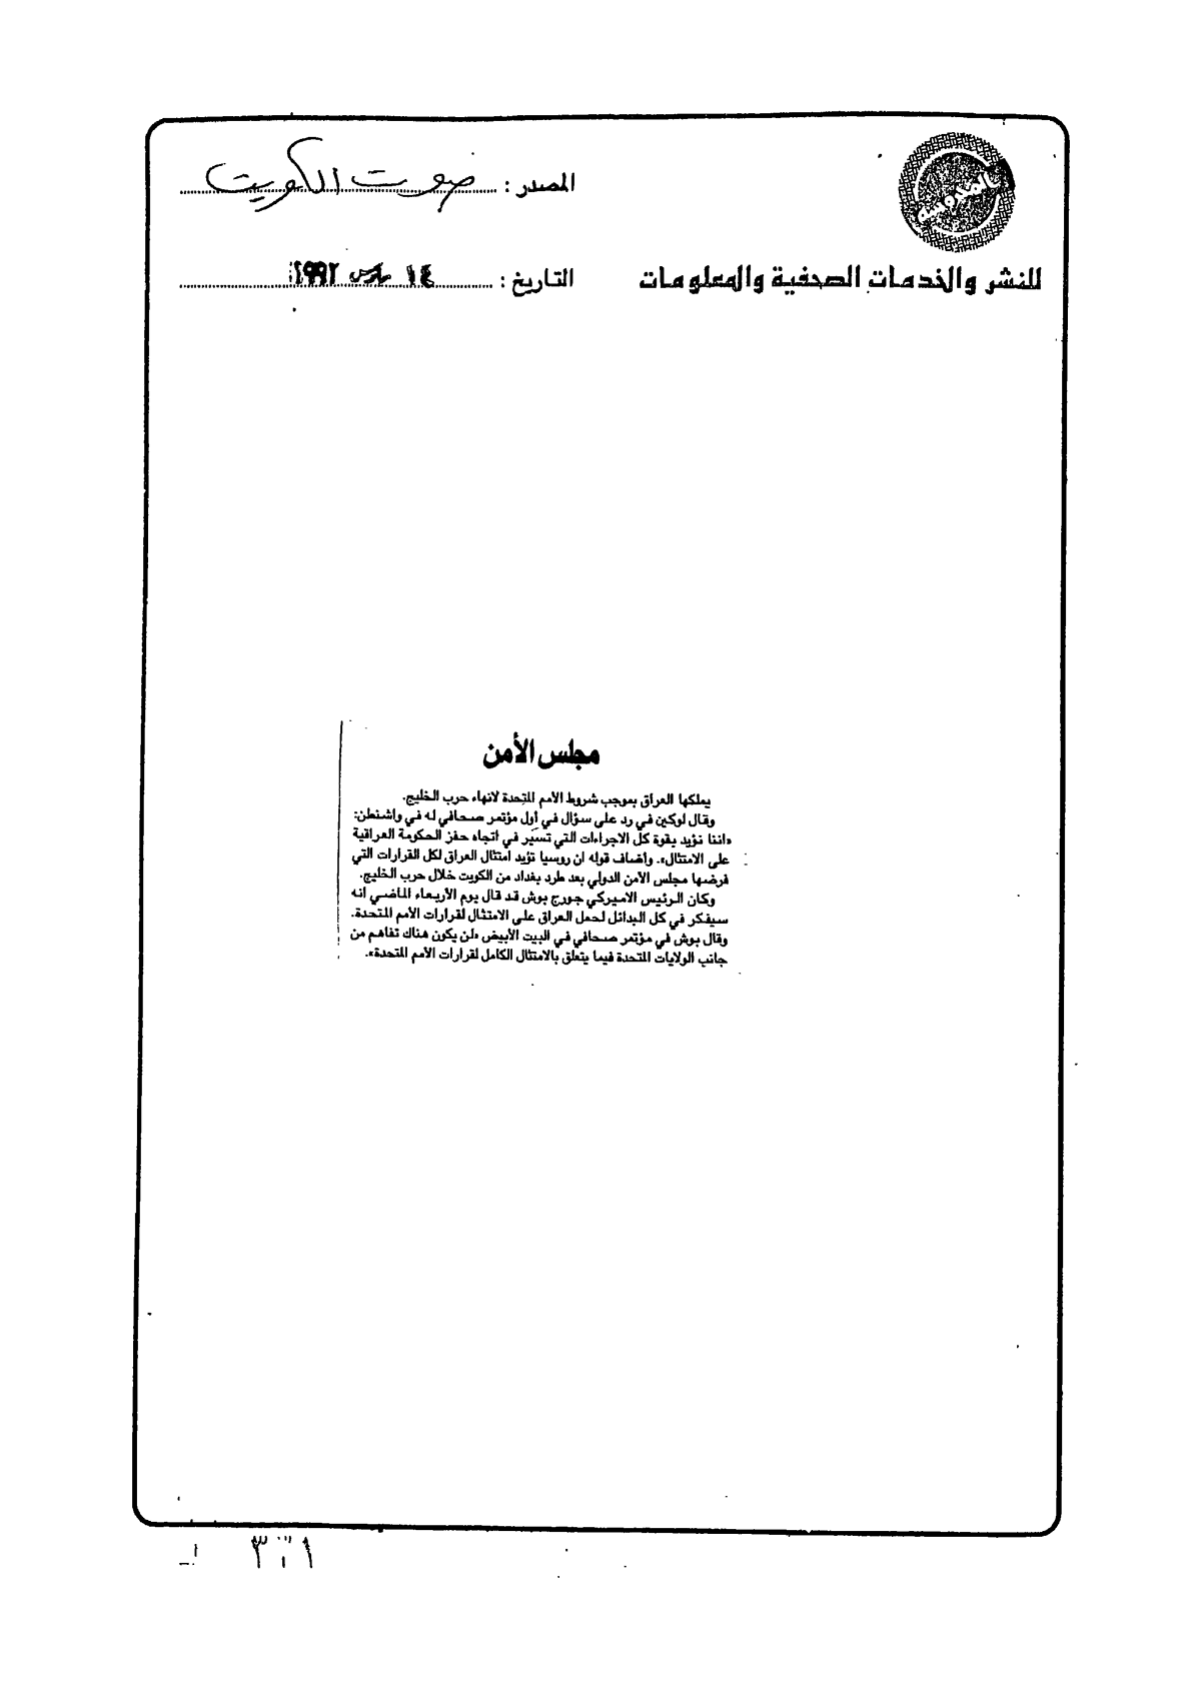 المصدر : صوت الكويت
للنشر والخدمات الصحفية والمعلومات
التاريخ : ١٤ مارس ١٩٩٢
مجلس الأمن
يملكها العراق بموجب شروط الأمم المتحدة لانهاء حرب الخليج.
وقال لوكين في رد على سؤال في أول مؤتمر صحافي له في واشنطن:
«اننا نؤيد بقوة كل الاجراءات التي تسير في اتجاه حفز الحكومة العراقية
على الامتثال». وأضاف قوله ان روسيا تؤيد امتثال العراق لكل القرارات التي
فرضها مجلس الأمن الدولي بعد طرد بغداد من الكويت خلال حرب الخليج.
وكان الرئيس الاميركي جورج بوش قد قال يوم الأربعاء الماضي انه
سيفكر في كل البدائل لحمل العراق على الامتثال لقرارات الأمم المتحدة.
وقال بوش في مؤتمر صحافي في البيت الأبيض «لن يكون هناك تفاهم من
جانب الولايات المتحدة فيما يتعلق بالامتثال الكامل لقرارات الأمم المتحدة».